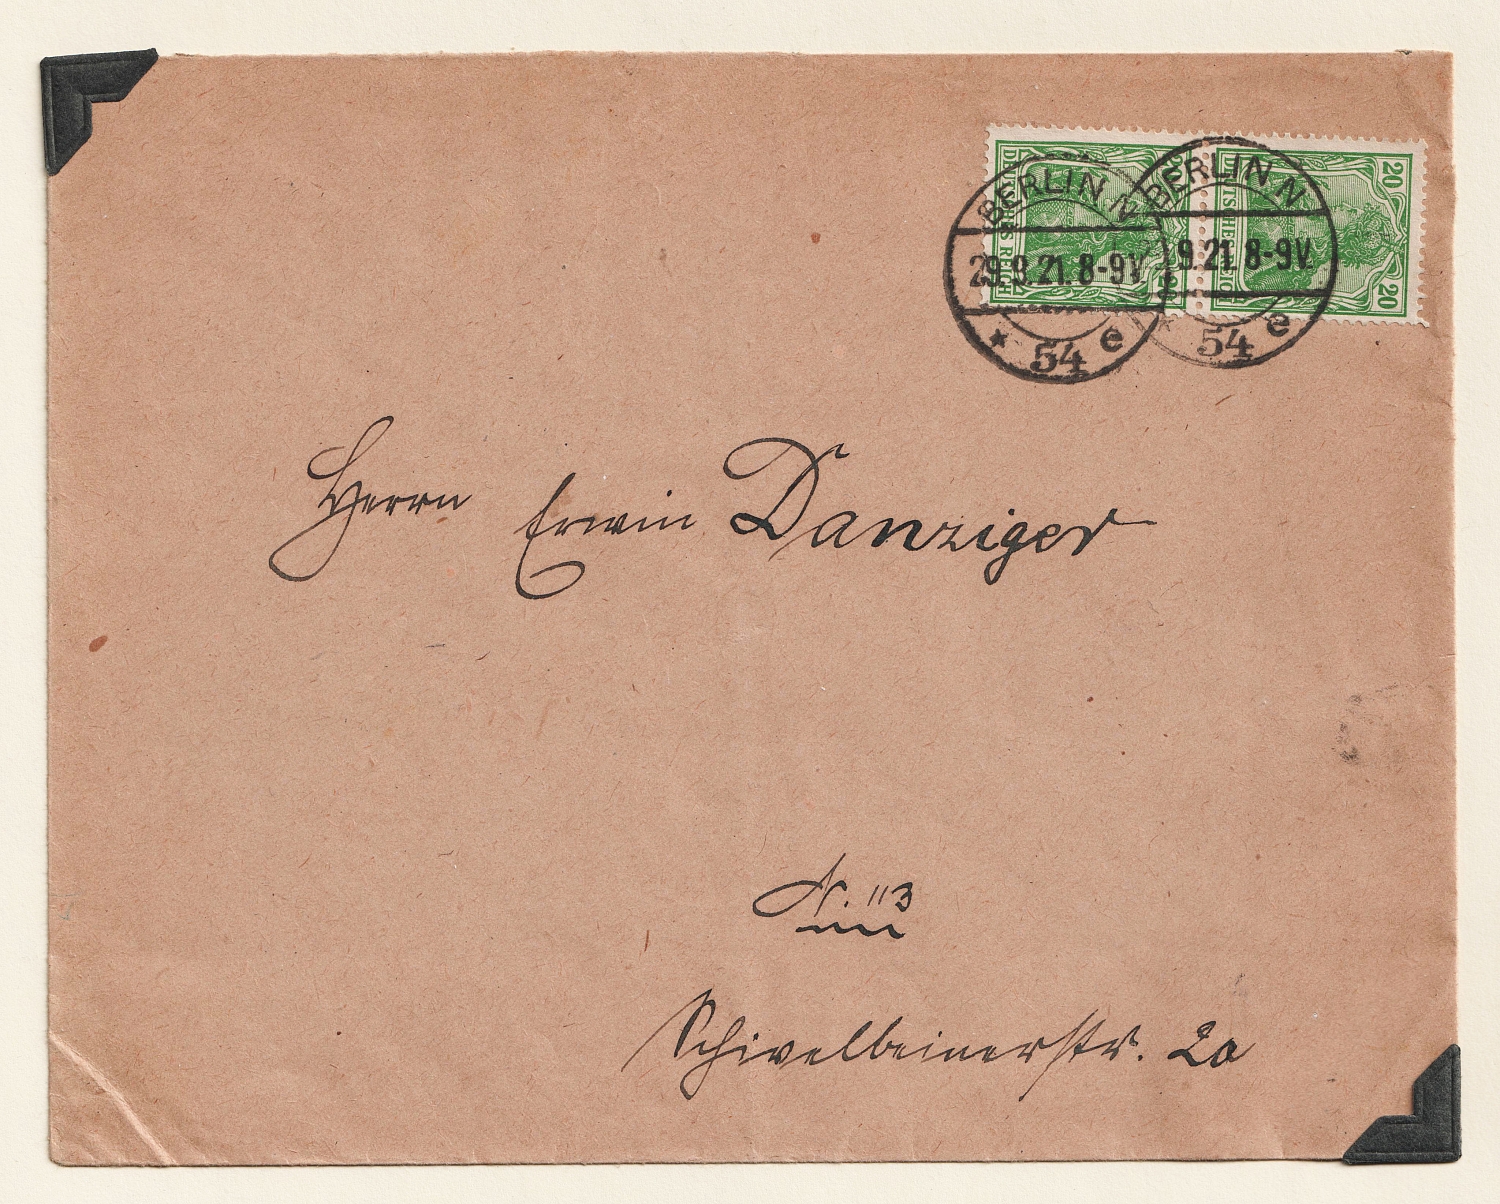 DEUTSCHES REICH
20 20
BERLIN N
29.9.21. 8-9V.
* 54 e
BERLIN N
9.21. 8-9V.
54 e
Herrn Erwin Danziger
N. 113
Schivelbeinerstr. 2a